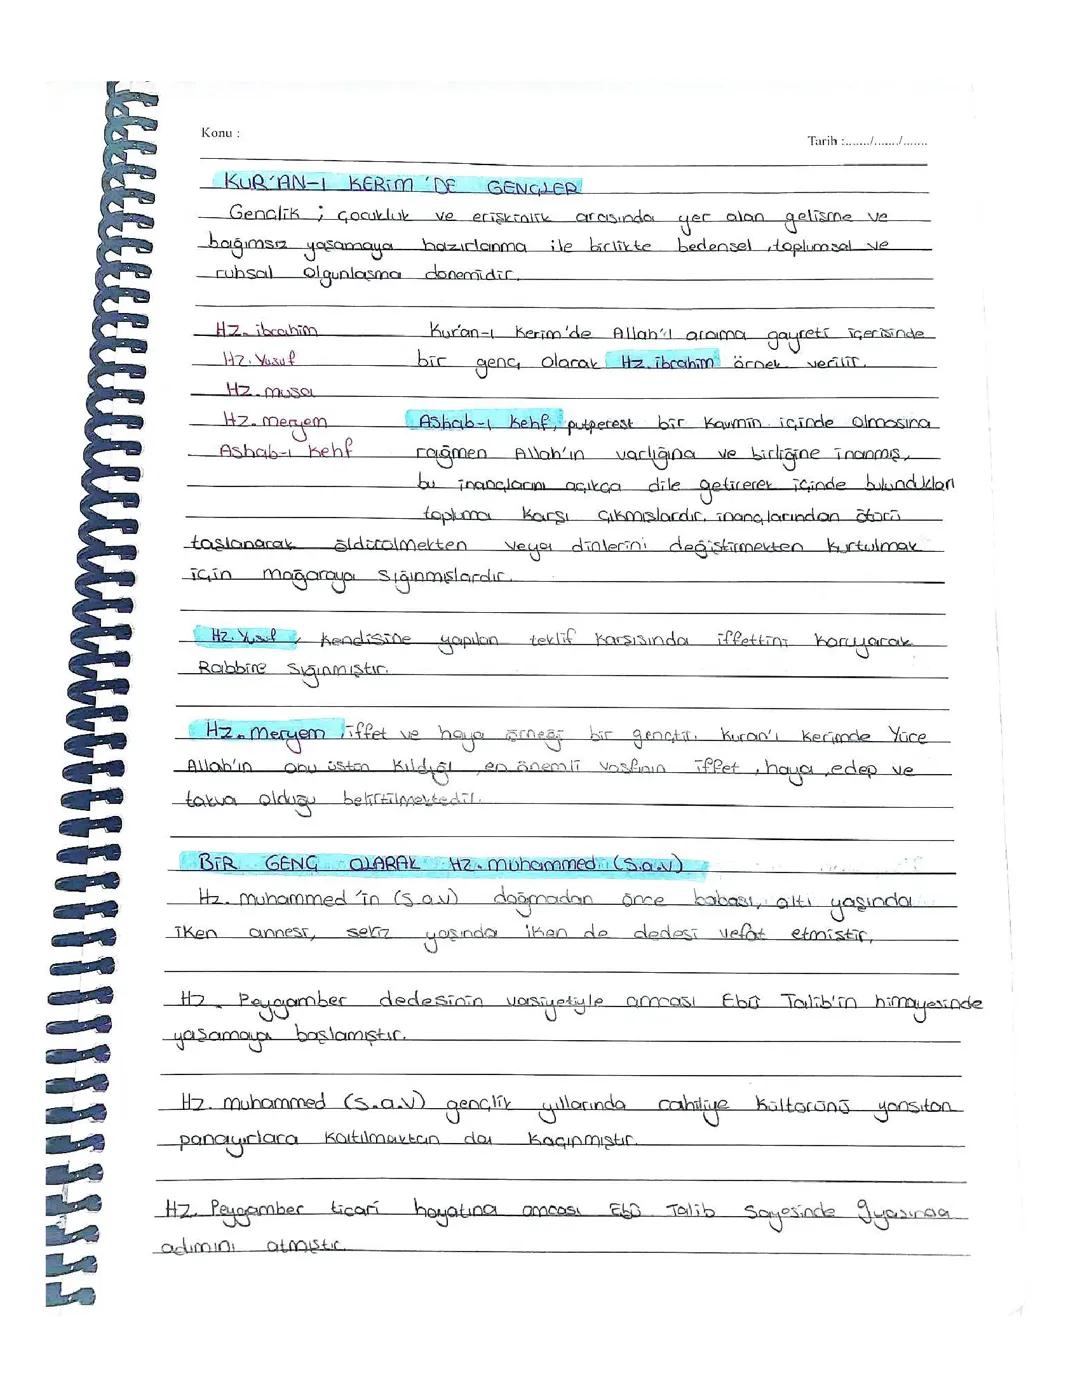 Konu :
Tarih :......./......./.......
KUR'AN-I KERİM 'DE GENÇLER
Gençlik ; çocukluk ve erişkinlik arasında yer alan gelişme ve
bağımsız yaşamaya hazırlanma ile birlikte bedensel ,toplumsal ve
ruhsal olgunlaşma dönemidir.
Hz. ibrahim
Hz. Yusuf
Hz. musa
Hz. meryem
Ashab-ı Kehf
Kur'an-ı Kerim'de Allah'ı arama gayreti içerisinde
bir genç olarak Hz. ibrahim örnek verilir.
Ashab-ı Kehf, putperest bir kavmin içinde olmasına
rağmen Allah'ın varlığına ve birliğine inanmış,
bu inançlarını açıkça dile getirerek içinde bulundukları
topluma karşı çıkmışlardır. inançlarından ötürü
taşlanarak öldürülmekten veya dinlerini değiştirmekten kurtulmak
için mağaraya sığınmışlardır.
Hz. Yusuf , kendisine yapılan teklif karşısında iffettini koruyarak
Rabbine sığınmıştır.
Hz. Meryem ,iffet ve haya örneği bir gençtir. Kuran'ı Kerimde Yüce
Allah'ın onu üstün kıldığı ,en önemli vasfının iffet ,haya ,edep ve
takva olduğu belirtilmektedir.
BİR GENÇ OLARAK Hz. muhammed (S.a.v)
Hz. muhammed 'in (S.a.v) doğmadan önce babası, altı yaşında
iken annesi, sekiz yaşında iken de dedesi vefat etmiştir.
Hz. Peygamber dedesinin vasiyetiyle amcası Ebû Talib'in himayesinde
yaşamaya başlamıştır.
Hz. muhammed (S.a.v) gençlik yıllarında cahiliye kültürünü yansıtan
panayırlara katılmaktan da kaçınmıştır.
Hz. Peygamber ticari hayatına amcası Ebû Talib Sayesinde 9yaşında
adımını atmıştır.